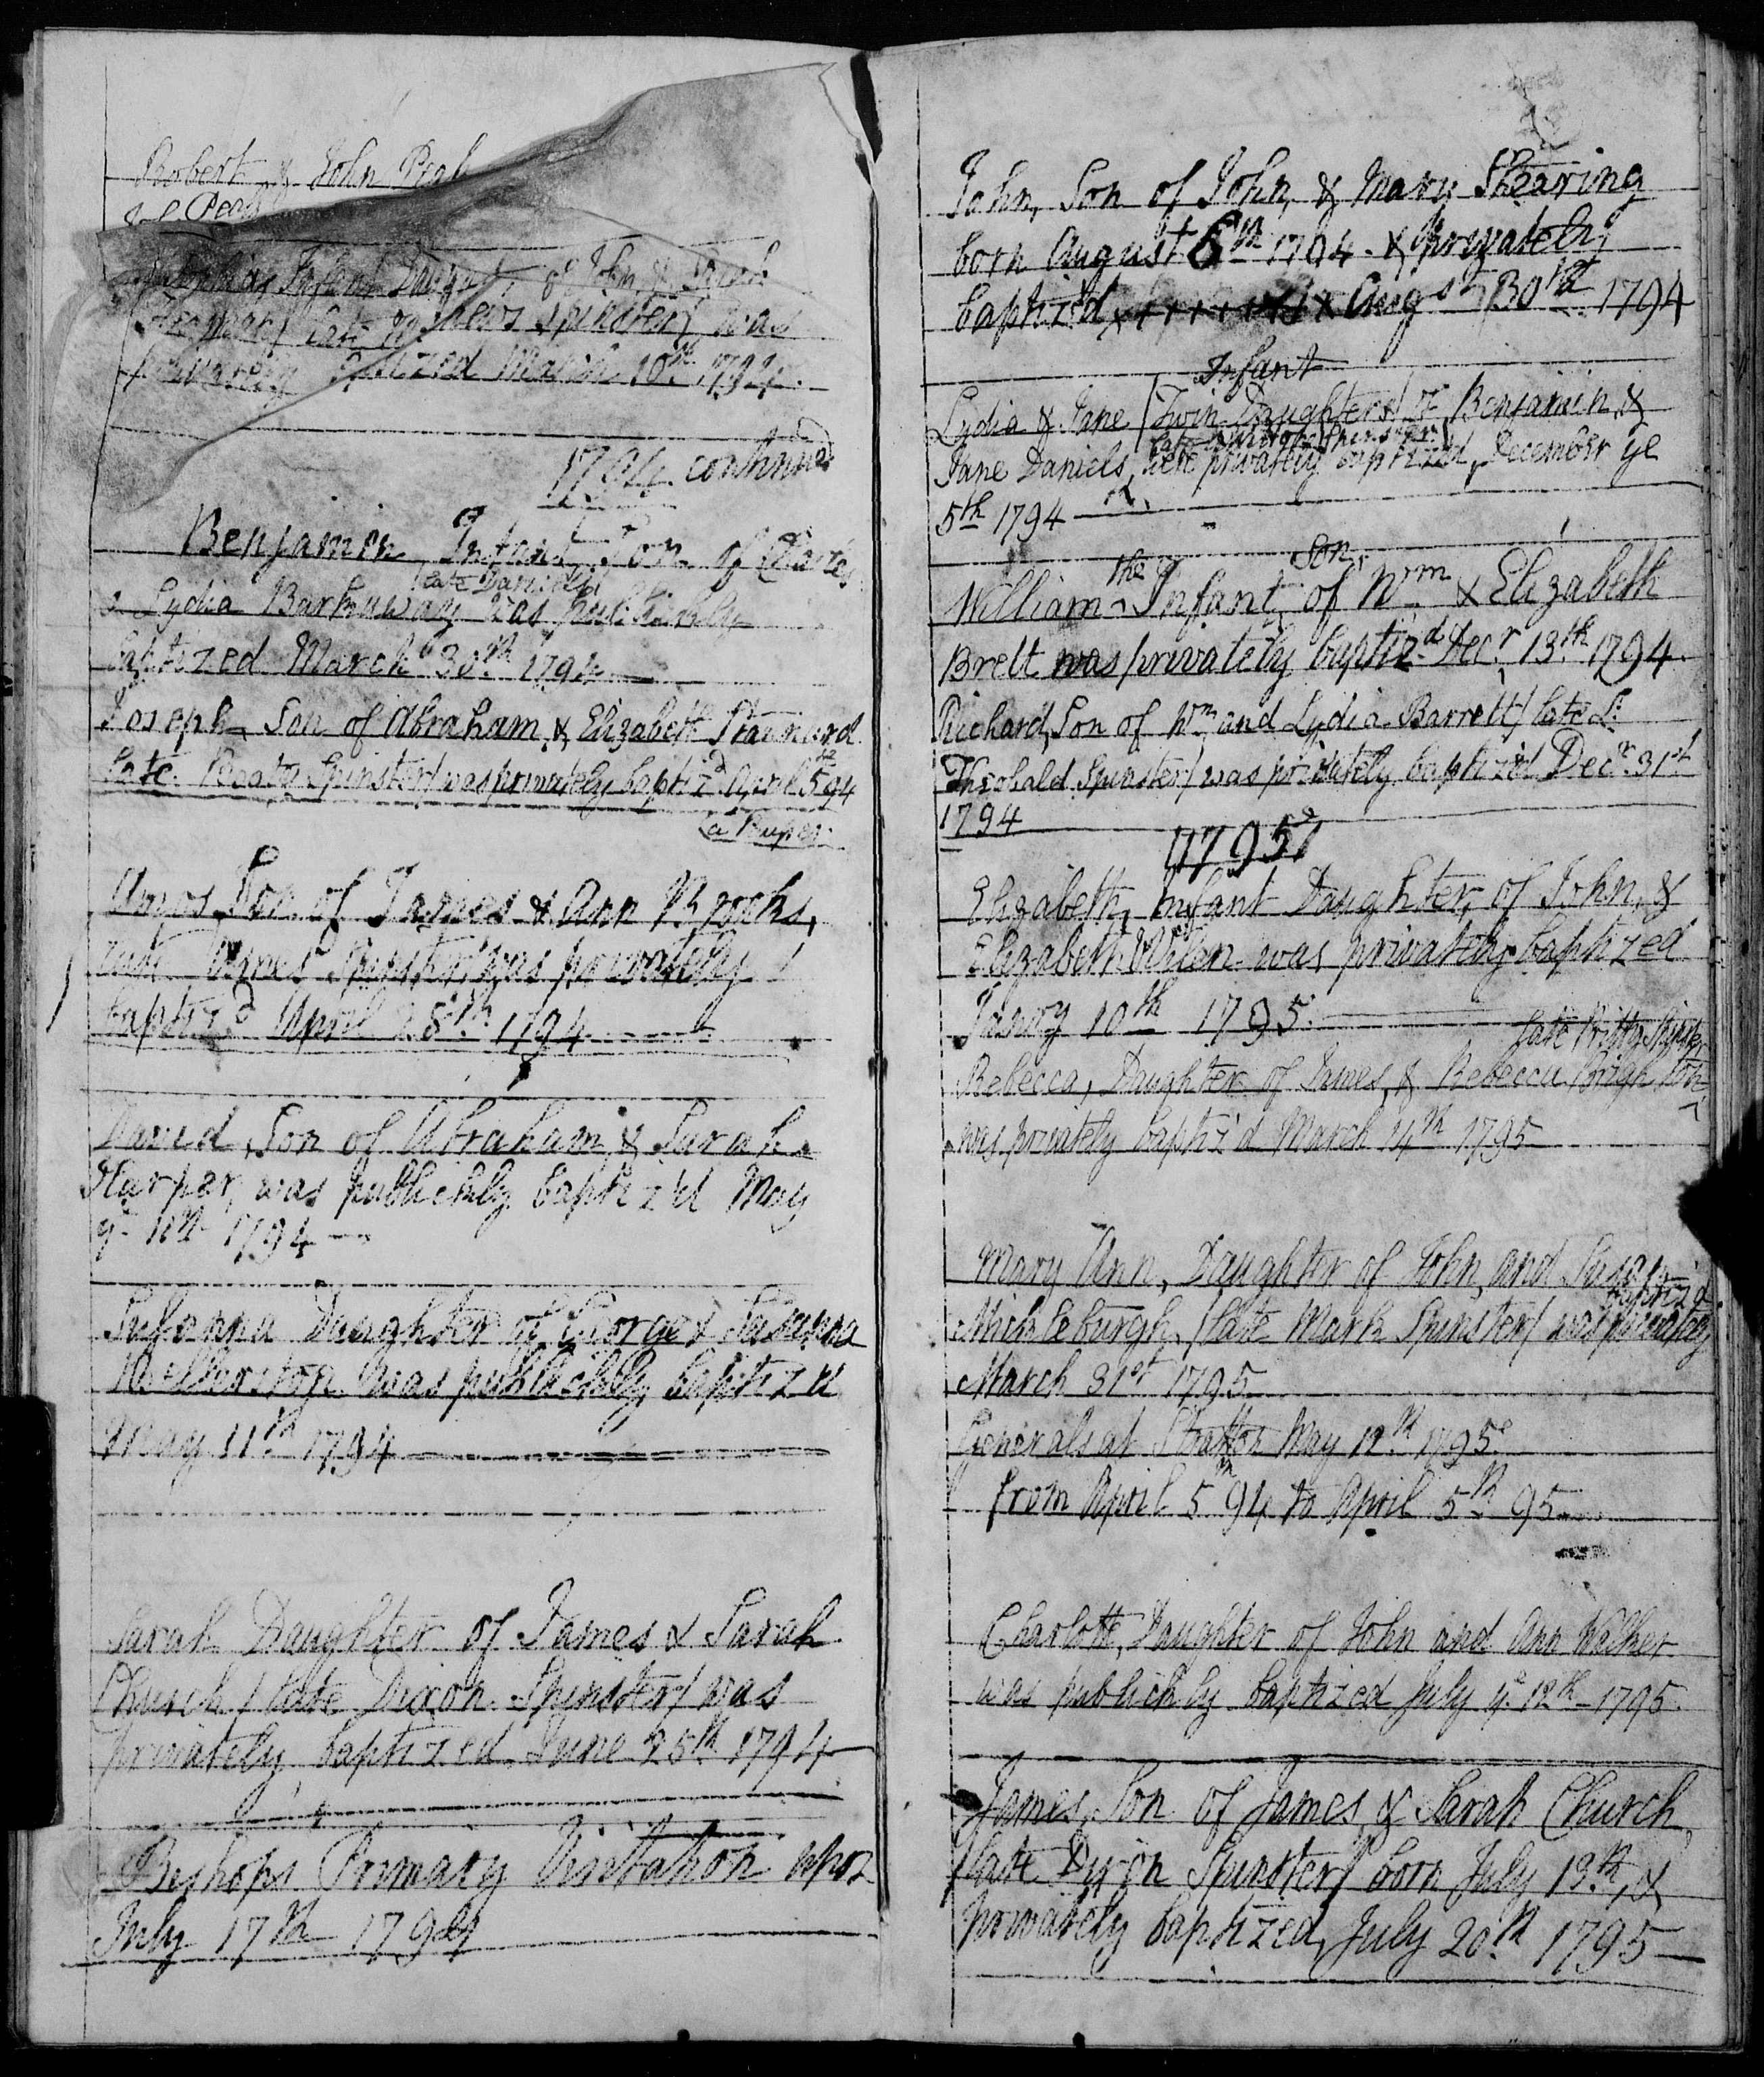 Robert & John
Infant Daughter of John & Sarah
late spinster/ was
baptized March 10th. 1794.
1794 continued
Benjamin Infant Son of Charles
/late Daniels/
& Lydia Barkaway was publickly
baptized March 30th. 1794
Joseph Son of Abraham & Elizabeth Stannard
late Spinster/ was privately baptiz'd April 5th 94
a Pauper.
Amos Son of James & Ann Brooks,
late Spinster/ was privately
baptiz'd April 28th. 1794
David, Son of Abraham & Sarah
Harper, was publickly baptiz'd May
ye 11th 1794
Susanna Daughter of George & Susanna
was publickly baptiz'd
May 11th 1794
Sarah Daughter of James & Sarah
Church / late Dixon Spinster/ was
privately baptized June 25th 1794
Bishops Primary Visitation
July 17th 1794
John, Son of John, & Mary Shearing
born August 6th 1794. & privately
baptized Augst 30th 1794
Infant
Lydia & Jane /Twin Daughters/ of Benjamin &
late Spinster
Jane Daniels, were privately baptized, December ye
5th 1794
the Son
William Infant of Wm. & Elizabeth
Brett was privately baptiz'd Decr. 13th. 1794.
Richard, Son of Wm and Lydia Barrett/ late L:
Theobald Spinster/ was privately baptiz'd Decr. 31st
1794
1795
Elizabeth, Infant Daughter, of John, &
Elizabeth was privately baptized
Janry 10th 1795.
late Pritty Spinster
Rebecca, Daughter of James, & Rebecca
was privately baptiz'd March 14th 1795
Mary Ann, Daughter of John and Susan
baptiz'd
Mickleburgh, /late Mark Spinster/ was privately
March 31st 1795
Generals at Stratton May 12th. 1795
from April 5th 94 to April 5th. 95
Charlotte, Daughter of John and Ann Walker
was publickly baptized July ye. 12th - 1795.
James, Son of James & Sarah Church,
/late Dixon Spinster/ born July 13th, &
privately baptized, July 20th 1795